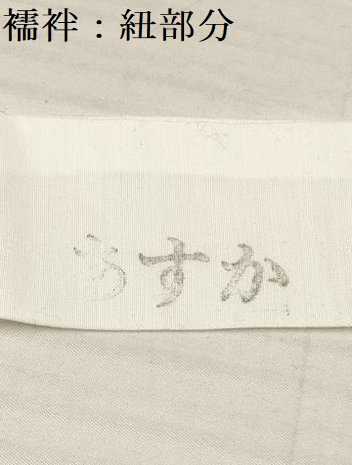 襦袢：紐部分
あすか